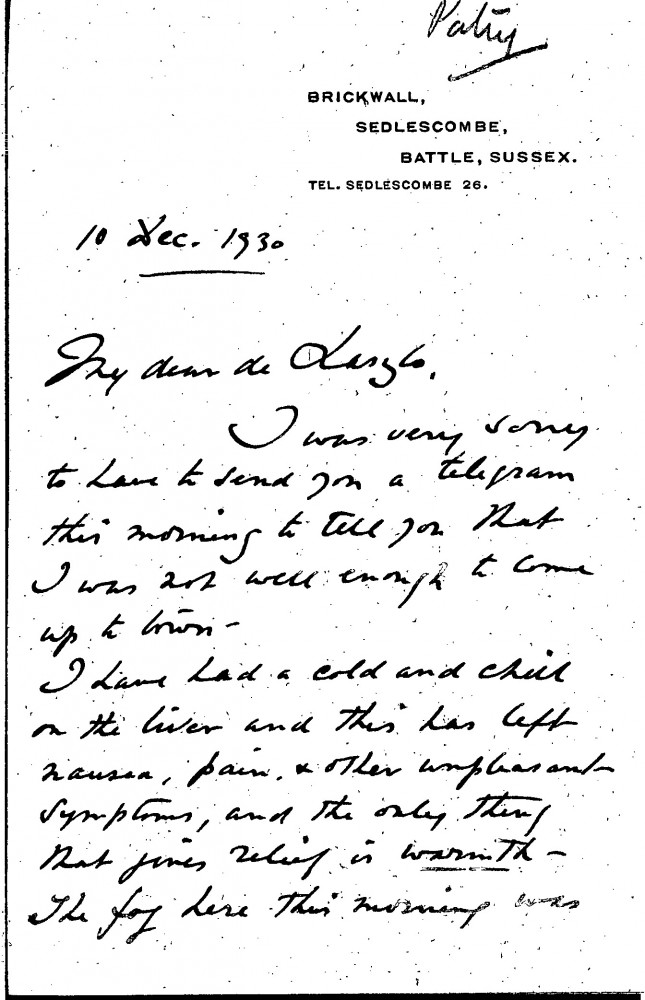 Patry
BRICKWALL,
SEDLESCOMBE,
BATTLE, SUSSEX.
TEL. SEDLESCOMBE 26.
10 Dec. 1930
My dear de Laszlo,
I was very sorry
to have to send you a telegram
this morning to tell you that
I was not well enough to come
up to town -
I have had a cold and chill
on the liver and this has left
nausea, pain, & other unpleasant
symptoms, and the only thing
that gives relief is warmth -
The fog here this morning was